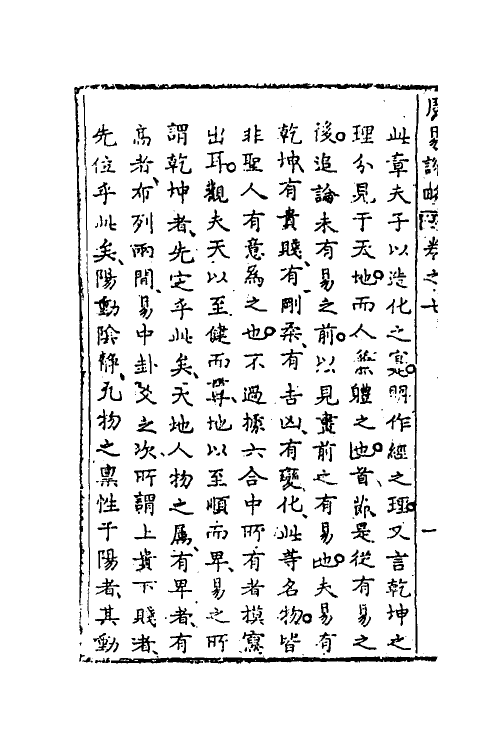 周易說略 卷之七 一
此章夫子以造化之寔明作經之理又言乾坤之
理分見于天地而人兼體之也首節是從有易之
後追論未有易之前以見畫前之有易也夫易有
乾坤有貴賤有剛柔有吉凶有變化此等名物皆
非聖人有意為之也不過據六合中所有者模寫
出耳觀夫天以至健而尊地以至順而卑易之所
謂乾坤者先定乎此矣天地人物之屬有卑者有
高者布列兩間易中卦爻之次所謂上貴下賤者
先位乎此矣陽動陰靜凡物之稟性于陽者其動